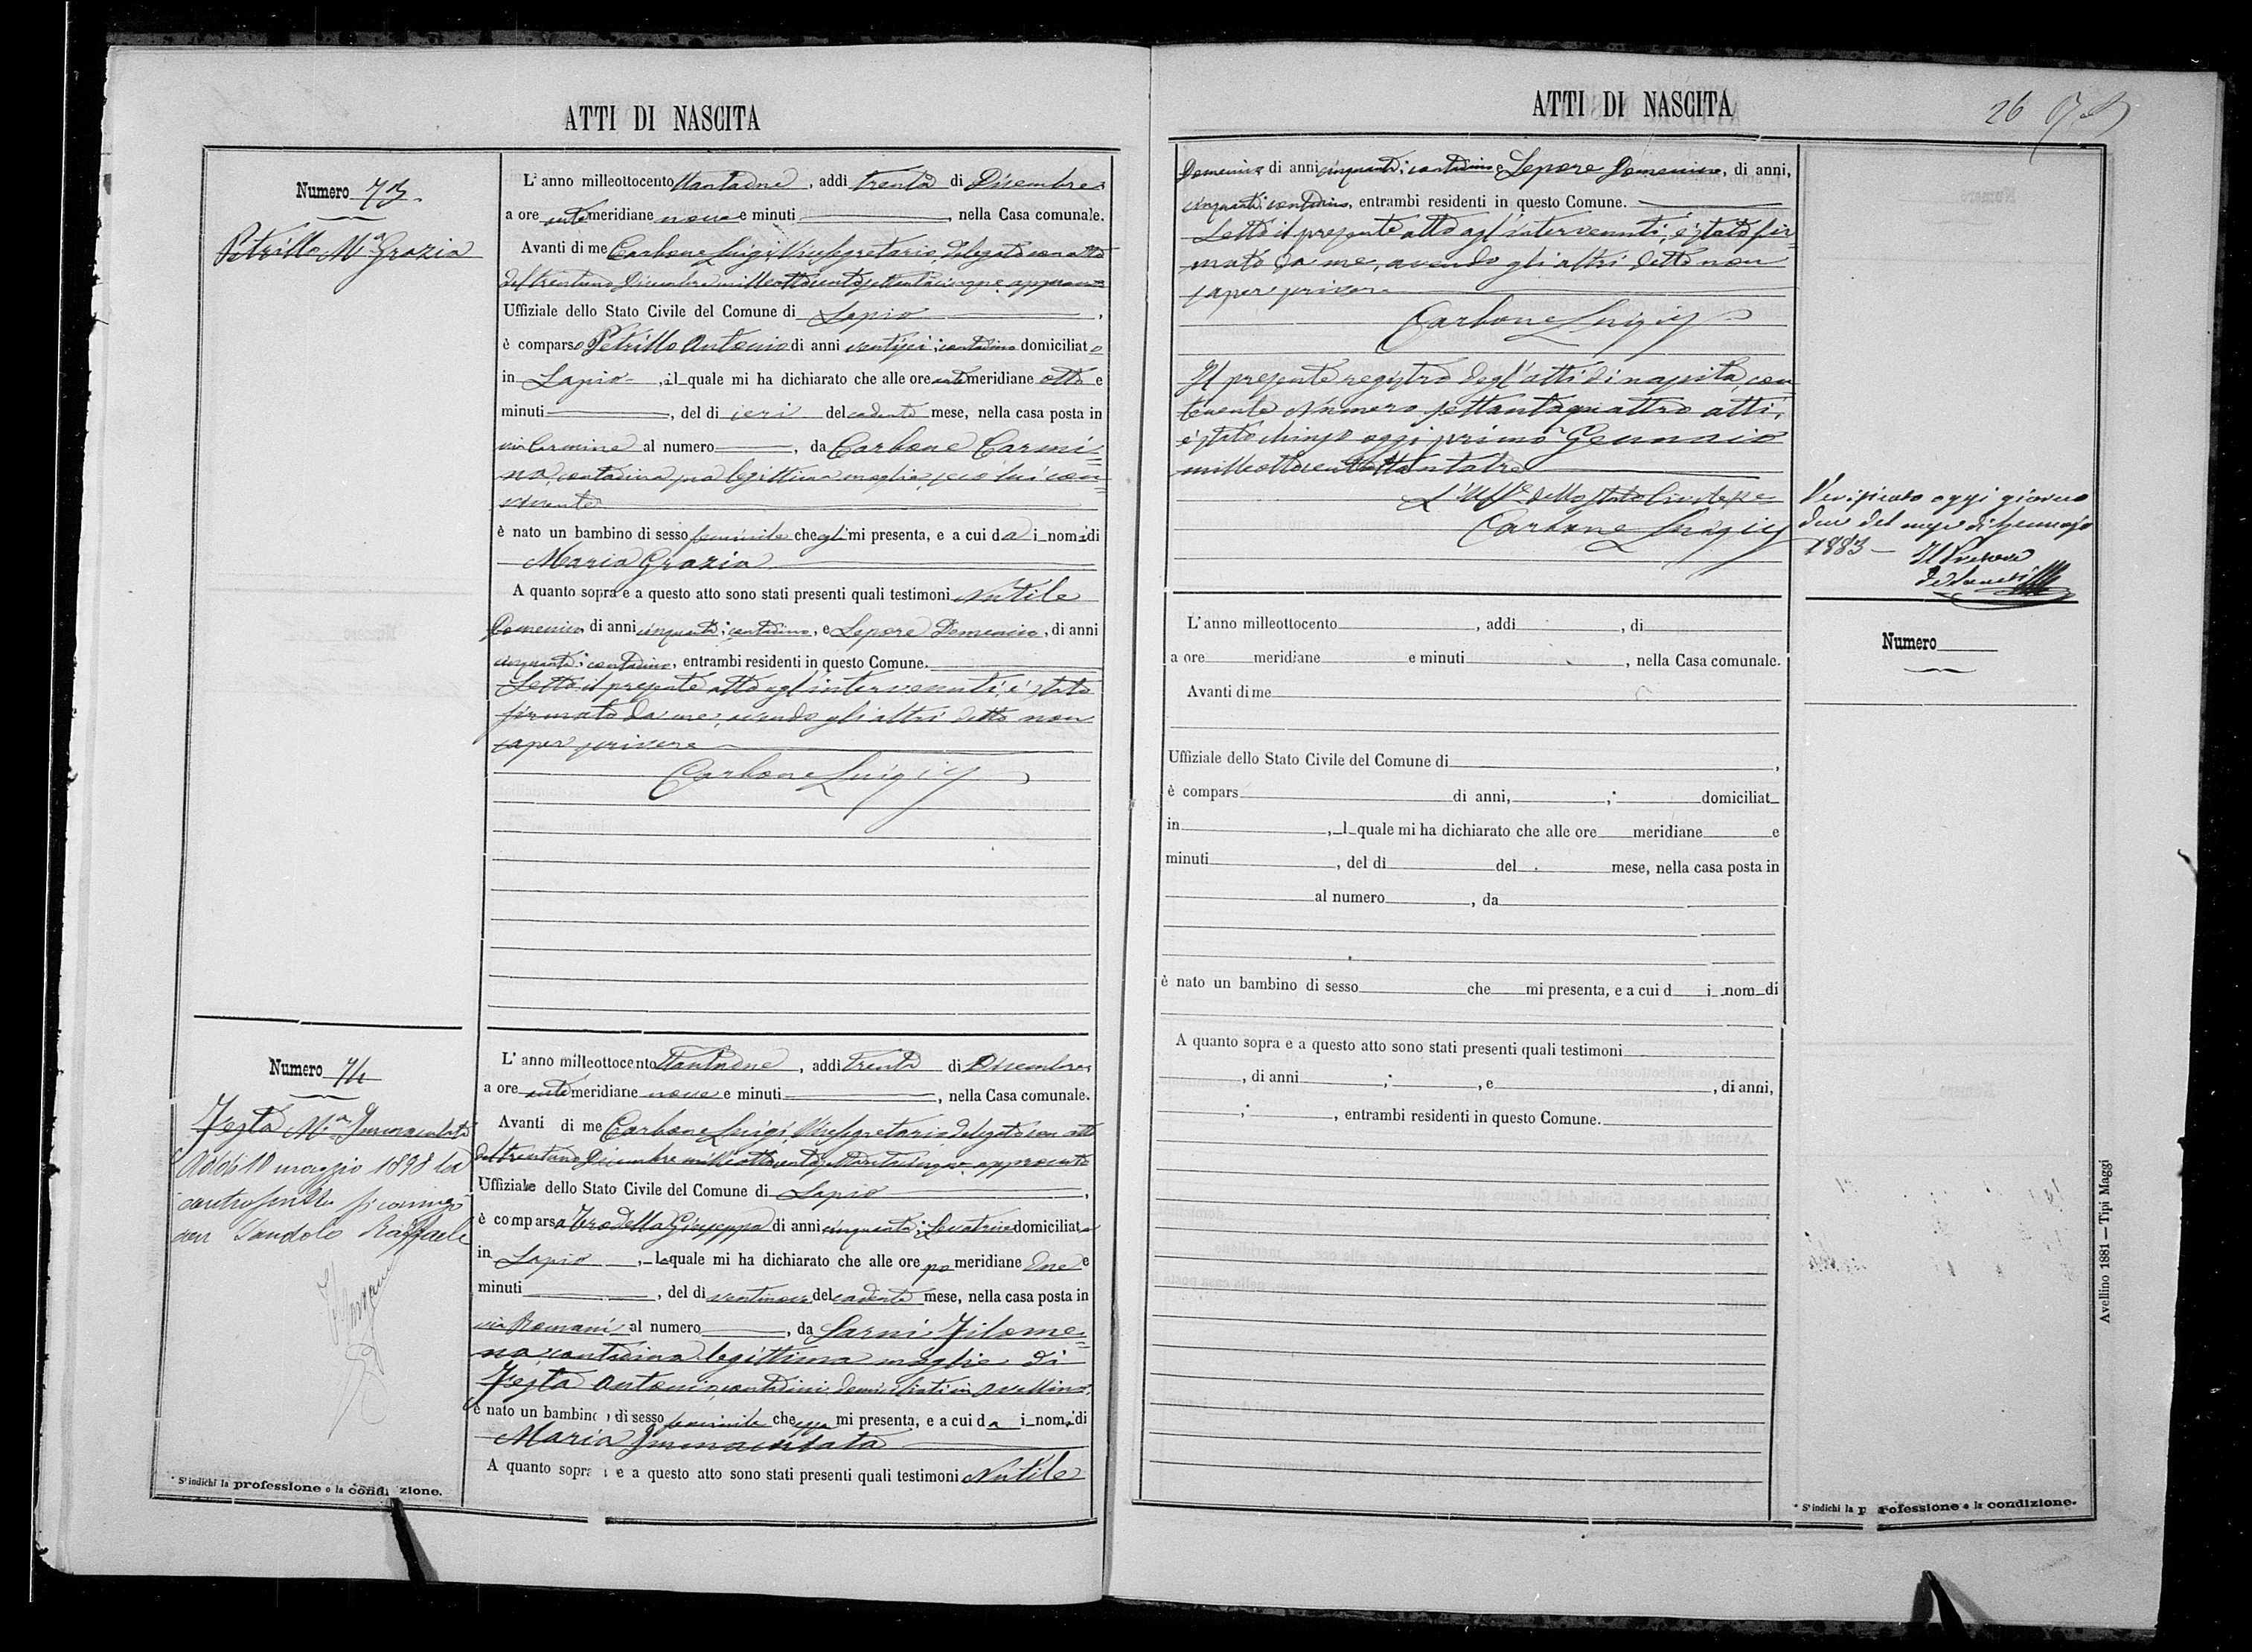 ATTI DI NASCITA
Numero 73.
Petrillo Mª Grazia
L'anno milleottocento ottantadue, addi trenta di Dicembre
a ore antimeridiane nove e minuti, nella Casa comunale.
Avanti di me Carbone Luigi, Vicesegretario, delegato con atto
del trentuno Dicembre milleottocentosettantacinque, approvato
Uffiziale dello Stato Civile del Comune di Lapio,
è comparso Petrillo Antonio di anni ventisei; contadino domiciliato
in Lapio, il quale mi ha dichiarato che alle ore antimeridiane otto e
minuti, del di ieri del cadente mese, nella casa posta in
via Carmine al numero, da Carbone Carmi=
na, contadina, sua legittima moglie, seco lui con=
vivente
è nato un bambino di sesso femminile che egli mi presenta, e a cui da i nomi di
Maria Grazia
A quanto sopra e a questo atto sono stati presenti quali testimoni Nutile
Domenico, di anni cinquanta; contadino, e Lepore Domenico, di anni
cinquanta; contadino, entrambi residenti in questo Comune.
Letto il presente atto agl'intervenuti, è stato
firmato da me, avendo gli altri detto non
saper scrivere
Carbone Luigi
Numero 74
Testa Mª Immacolata
Addì 10 maggio 1898 la
controscritta si coniugò
con Dandolo Raffaele
L'anno milleottocento ottantadue, addi trenta di Dicembre
a ore antimeridiane nove e minuti, nella Casa comunale.
Avanti di me Carbone Luigi, Vicesegretario delegato con atto
del trentuno Dicembre milleottocentosettantacinque, approvato
Uffiziale dello Stato Civile del Comune di Lapio,
è comparsa Giuseppa di anni cinquanta; Levatrice domiciliata
in Lapio, la quale mi ha dichiarato che alle ore pomeridiane due e
minuti, del di ventinove del cadente mese, nella casa posta in
via Romani al numero, da Sarni Filome=
na, contadina legittima moglie di
Testa Antonio, contadini, domiciliati in Avellino,
è nato un bambino di sesso femminile che essa mi presenta, e a cui da i nomi di
Maria Immacolata
A quanto sopra e a questo atto sono stati presenti quali testimoni Nutile
* S'indichi la professione o la condizione.
ATTI DI NASCITA
26
Domenico di anni cinquanta; contadino e Lepore Domenico, di anni,
cinquanta; contadino, entrambi residenti in questo Comune.
Letto il presente atto agl'intervenuti, è stato fir=
mato da me, avendo gli altri detto non
saper scrivere
Carbone Luigi
Il presente registro degl'atti di nascita, con
tenente Numero settantaquattro atti,
è stato chiuso oggi primo Gennaio
milleottocentottantatre
L'Uffle dello Stato Civile
Carbone Luigi
Verificato oggi giorno
due del mese di Gennajo
1883 – Il Pretore
L'anno milleottocento, addi, di
a ore meridiane e minuti, nella Casa comunale.
Avanti di me
Uffiziale dello Stato Civile del Comune di,
è compars di anni, ; domiciliat
in, l quale mi ha dichiarato che alle ore meridiane e
minuti, del di del mese, nella casa posta in
al numero, da
è nato un bambino di sesso che mi presenta, e a cui d i nom di
A quanto sopra e a questo atto sono stati presenti quali testimoni
, di anni ; , e, di anni,
; , entrambi residenti in questo Comune.
Numero
* S'indichi la professione o la condizione.
Avellino 1881 — Tipi Maggi